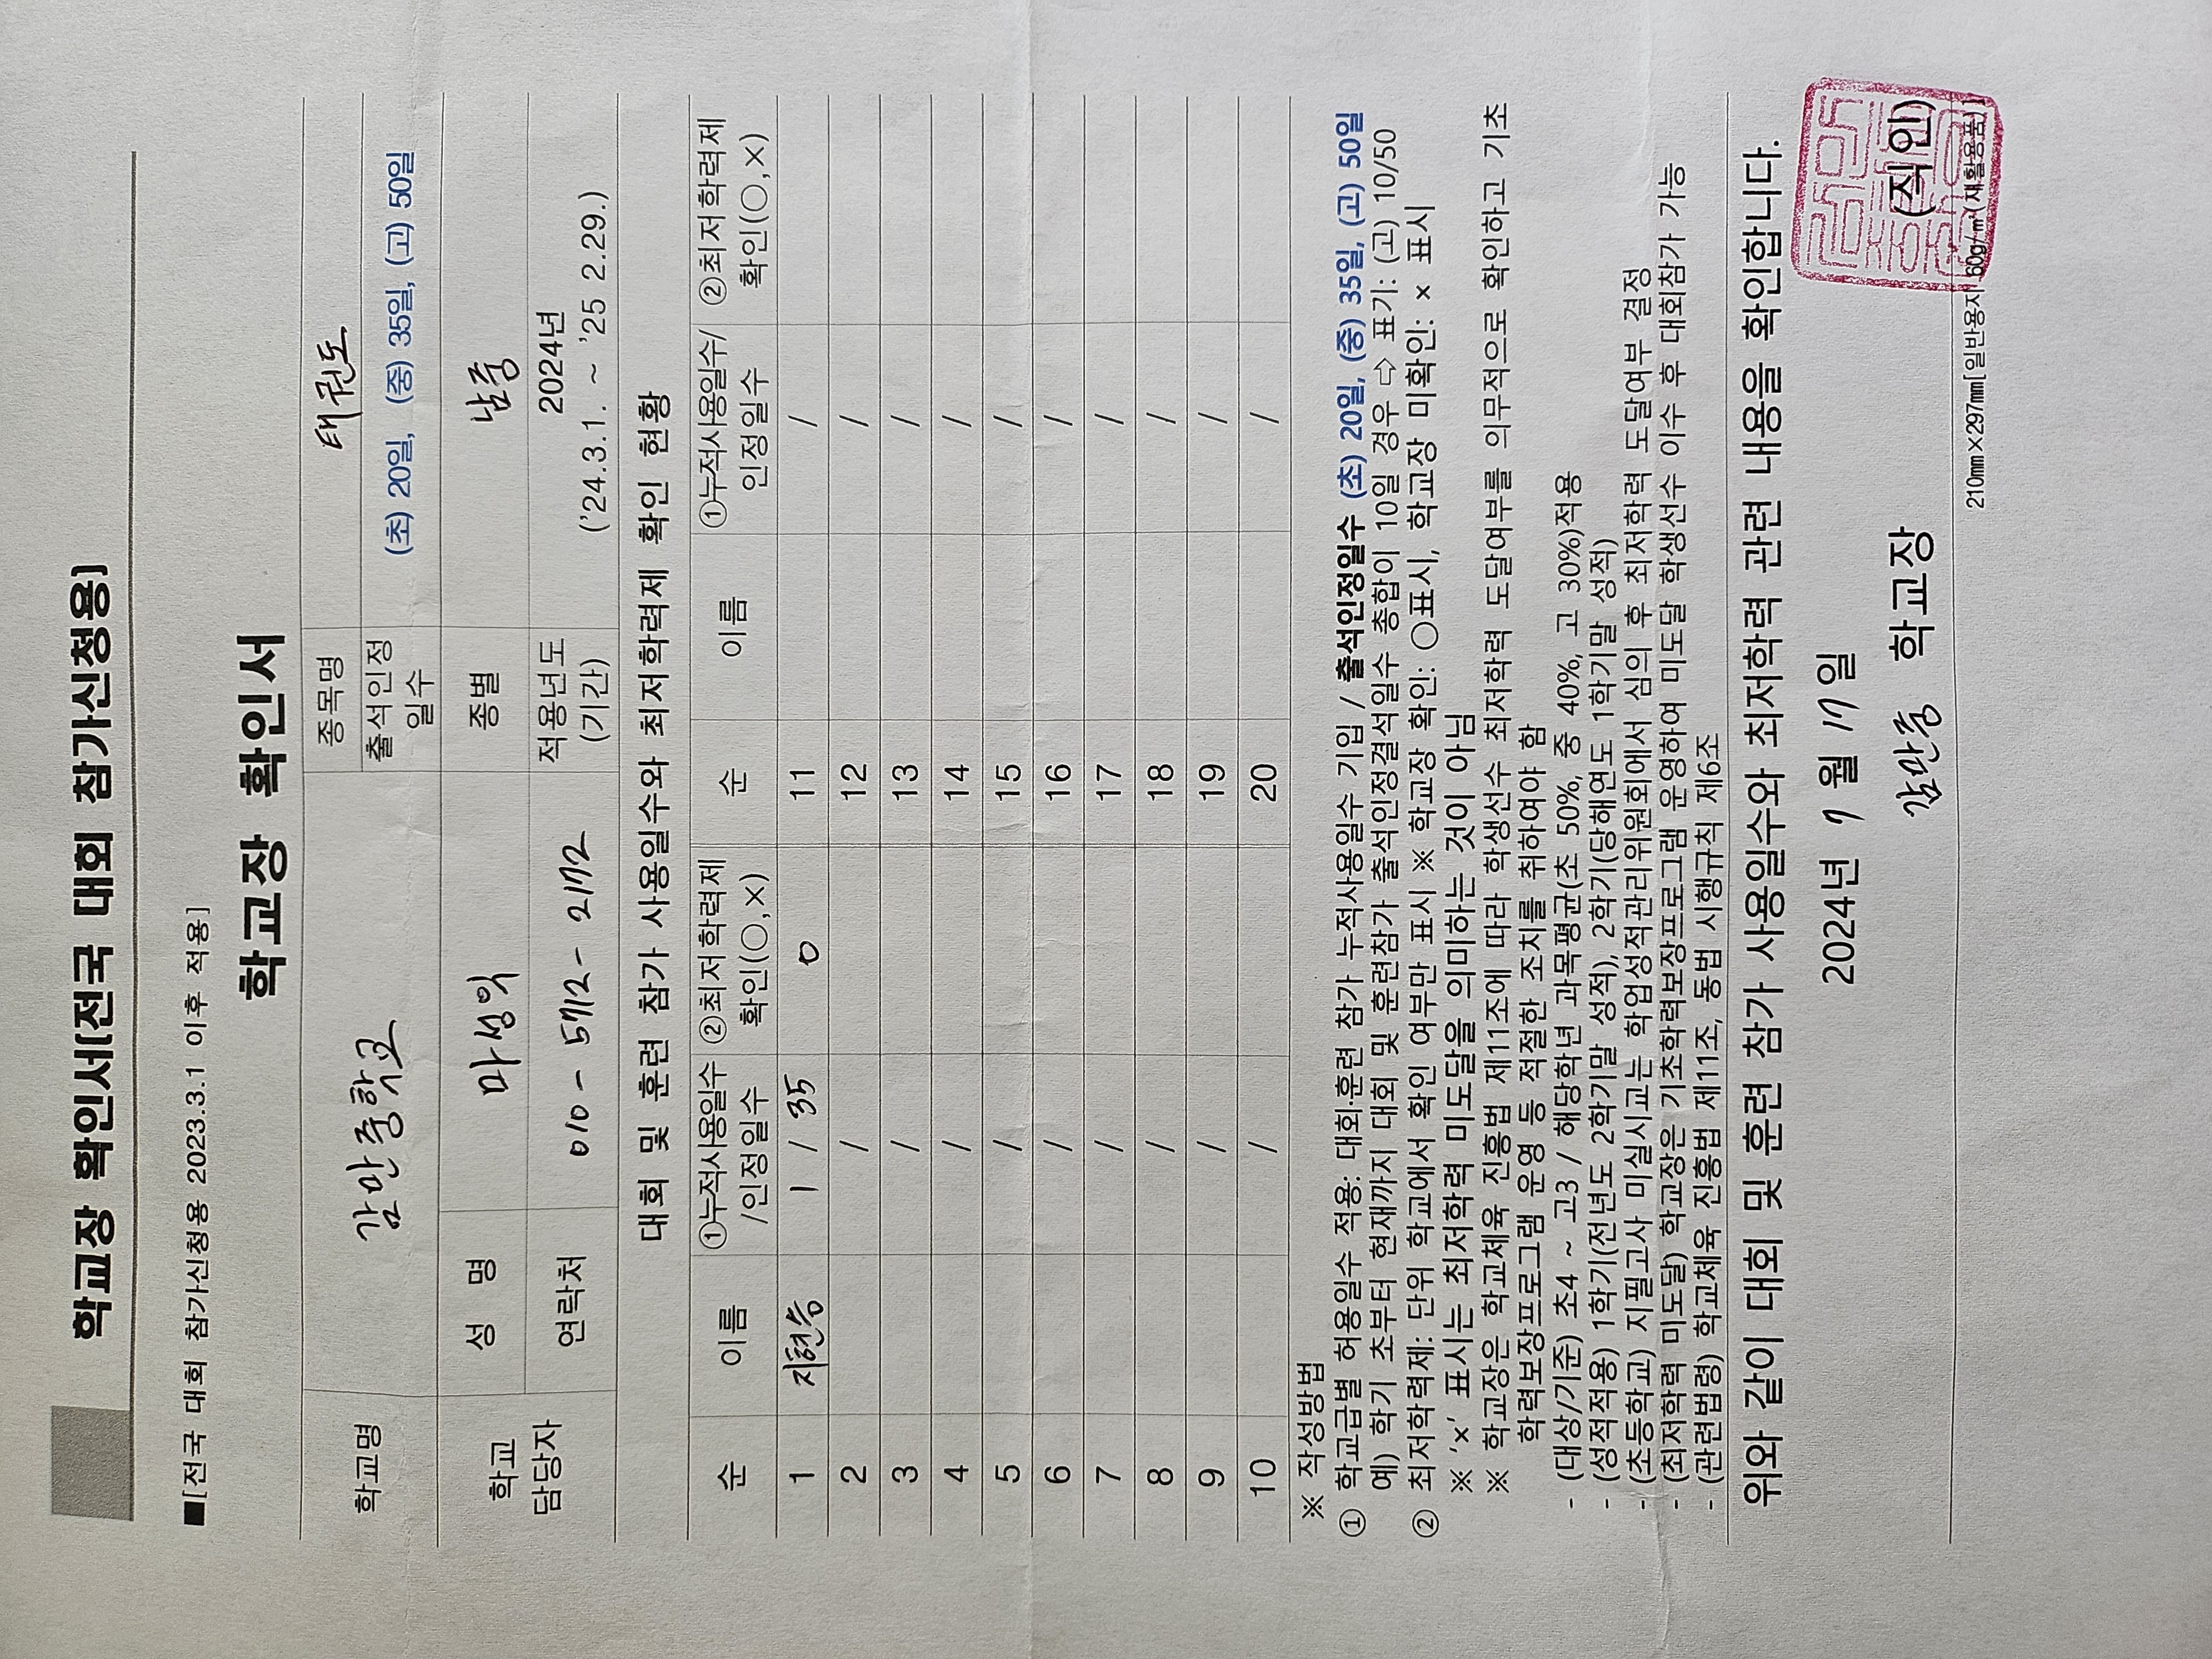 학교장 확인서(전국 대회 참가신청용)
■[전국 대회 참가신청용 2023.3.1 이후 적용]
학교장 확인서
학교명 감만중학교 종목명 태권도
출석인정 일수 (초) 20일, (중) 35일, (고) 50일
학교 담당자 성 명 마성억 종별 남중
연락처 010-5712-2172 적용년도 (기간) 2024년 ('24.3.1. ~ '25 2.29.)
대회 및 훈련 참가 사용일수와 최저학력제 확인 현황
순 이름 ①누적사용일수/인정일수 ②최저학력제 확인(○,×) 순 이름 ①누적사용일수/인정일수 ②최저학력제 확인(○,×)
1 지현승 1 / 35 O 11 /
2 / 12 /
3 / 13 /
4 / 14 /
5 / 15 /
6 / 16 /
7 / 17 /
8 / 18 /
9 / 19 /
10 / 20 /
※ 작성방법
① 학교급별 허용일수 적용: 대회·훈련 참가 누적사용일수 기입 / 출석인정일수 (초) 20일, (중) 35일, (고) 50일
예) 학기 초부터 현재까지 대회 및 훈련참가 출석인정결석일수 총합이 10일 경우 ⇨ 표기: (고) 10/50
② 최저학력제: 단위 학교에서 확인 여부만 표시 ※ 학교장 확인: ○표시, 학교장 미확인: × 표시
※ '×' 표시는 최저학력 미도달을 의미하는 것이 아님
※ 학교장은 학교체육 진흥법 제11조에 따라 학생선수 최저학력 도달여부를 의무적으로 확인하고 기초
학력보장프로그램 운영 등 적절한 조치를 취하여야 함
- (대상/기준) 초4 ~ 고3 / 해당학년 과목평균(초 50%, 중 40%, 고 30%)적용
- (성적적용) 1학기(전년도 2학기말 성적), 2학기(당해연도 1학기말 성적)
- (초등학교) 지필고사 미실시교는 학업성적관리위원회에서 심의 후 최저학력 도달여부 결정
- (최저학력 미도달) 학교장은 기초학력보장프로그램 운영하여 미도달 학생선수 이수 후 대회참가 가능
- (관련법령) 학교체육 진흥법 제11조, 동법 시행규칙 제6조
위와 같이 대회 및 훈련 참가 사용일수와 최저학력 관련 내용을 확인합니다.
2024년 7월 17일
감만중 학교장 (직인)
210㎜×297㎜[일반용지 60g/㎡(재활용품)]